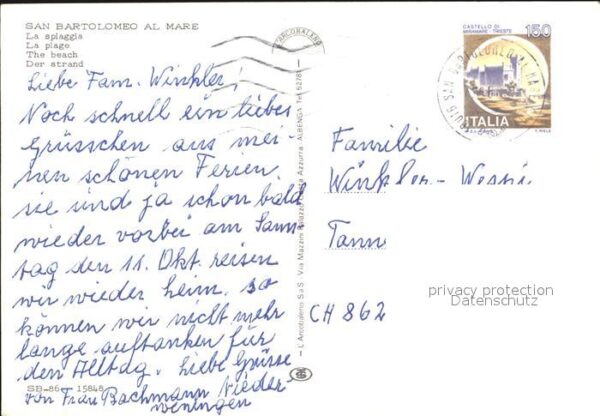 SAN BARTOLOMEO AL MARE
La spiaggia
La plage
The beach
Der strand
Liebe Fam. Winkler!
Noch schnell ein liebes
Grüsschen aus mei-
nen schönen Ferien
sie sind ja schon bald
wieder vorbei am Sams-
tag den 11. Okt. reisen
wir wieder heim. so
können wir nicht mehr
lange auftanken für
den Alltag. Liebe Grüsse
von Frau Bachmann Nieder
weningen
SB-86 15848
L'Arcobaleno S.a.S. - Via Mazzini Palazzo Costa Azzurra - ALBENGA - Tel. 52781
ARCOBALENO
CASTELLO DI
MIRAMARE - TRIESTE
150
ITALIA
SAN BARTOLOMEO AL MARE
Familie
Winkler-
Tann
CH 862
privacy protection
Datenschutz